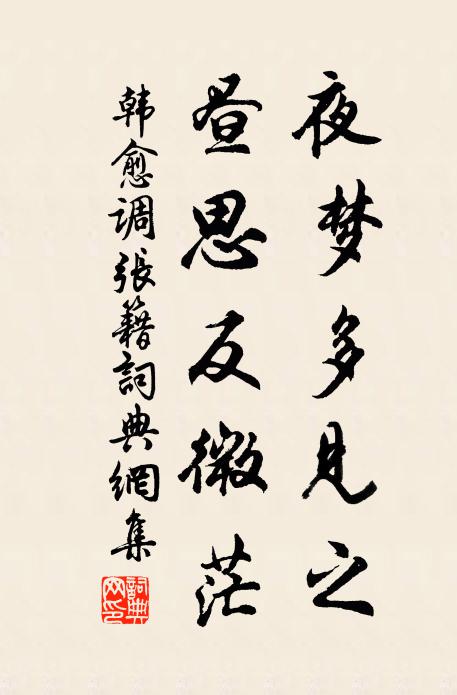 夜梦多见之
昼思反微茫
韩愈调张籍詞典網集
詞典网印